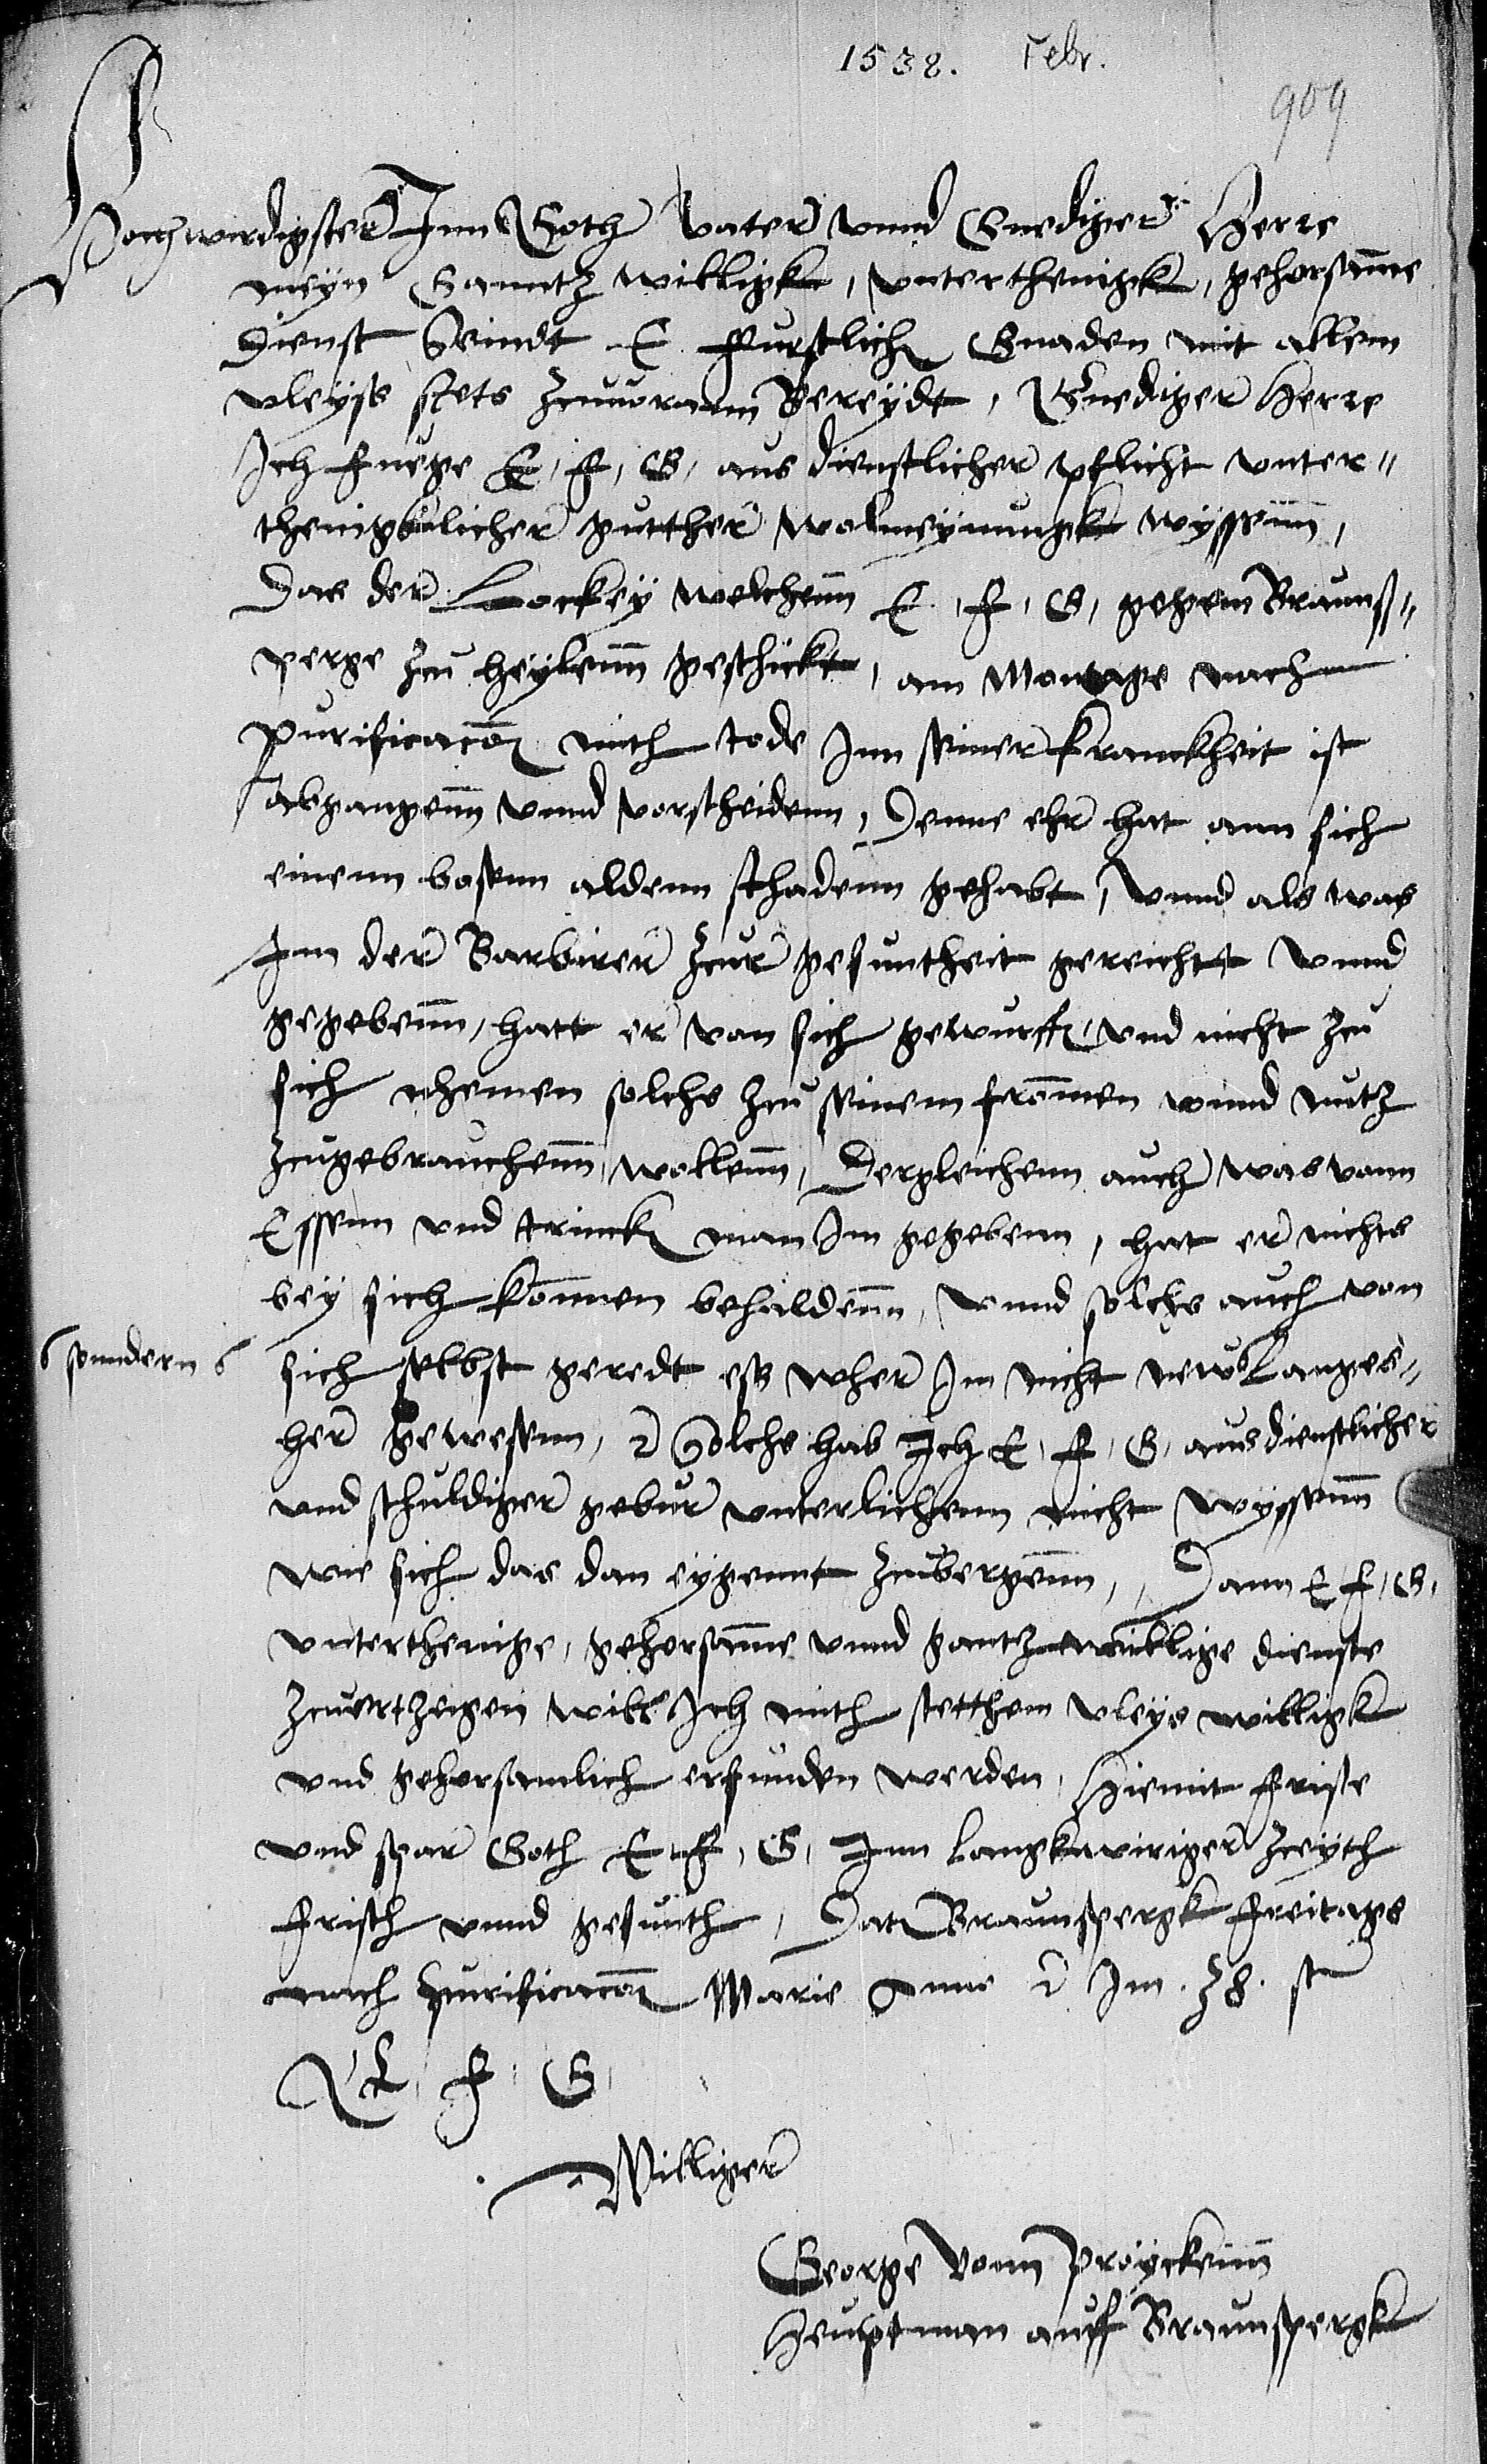 1538. Febr.
909
Hochwirdigster Inn Goth vater vnnd Gnediger Herre
meyn Ganntz willigk, vnterthenigk, gehorsamme
Dienst Seindt E furstlich Gnaden mit allem
vleyss stets Zcuuorann Bereydt, Gnediger Herre
Ich fuege E, f, G, aus dienstlicher pflicht vnter„
thenigklicher gutther wolmeynungk wyssenn,
Das der Lockey welchenn E, f, G, gegem Brauns„
perge zcu heylenn geschickt, am Montage nach
purificacōn mith tode Inn seiner kranckheit ist
abgangenn vnnd vorscheidenn, Denne ehr hat ann sich
einenn bosenn aldenn schadenn gehabt, vnnd als was
Im der Barbirer zcur gesuntheit gereicht vnnd
gegebenn, hatt er van sich gewurffn, vnd nicht zcu
sich nhemen solchs zcu seinem frommen vnnd nutz
zcugebrauchenn, wollenn, Dergleichenn auch was vann
Essenn vnd trinckn man Im gegebenn, hat er nichts
bey sich konnen behaldenn, vnnd solchs auch von
sunndern
sich selbst geredt ess wher Im nicht new Langes„
her gewessenn, Solchs hab Ich E, f, G, aus dienstlicher
vnd schuldiger gebur vnterlichenn nicht wyssenn
wie sich das dan eygennt zcubergenn, Dann E, f, G,
vnterthenige, gehorsamme vnnd gantzwillige dienste
Zcuertzeigen will Ich mith stetthem vleys willigk
vnd gehorsamlich erfunden werden, Hiemit friste
vnd spar Goth E, f, G, Inn langkwiriger zceyth
frisch vnnd gesunth, Dat Braunspergk freitags
nach purificacōn Marie Anno Im. 38. st
E, f, G,
Williger
George vonn Proyckenn
Heuptman auff Braunspergk